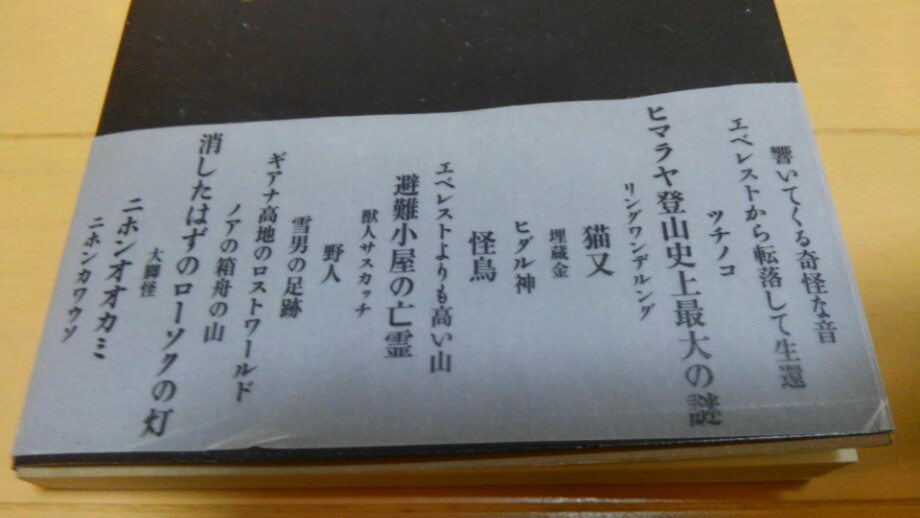 響いてくる奇怪な音
エベレストから転落して生還
ツチノコ
ヒマラヤ登山史上最大の謎
リングワンデルング
猫又
埋蔵金
ヒダル神
怪鳥
エベレストよりも高い山
避難小屋の亡霊
獣人サスカッチ
野人
雪男の足跡
ギアナ高地のロストワールド
ノアの箱舟の山
消したはずのローソクの灯
大脚怪
ニホンオオカミ
ニホンカワウソ